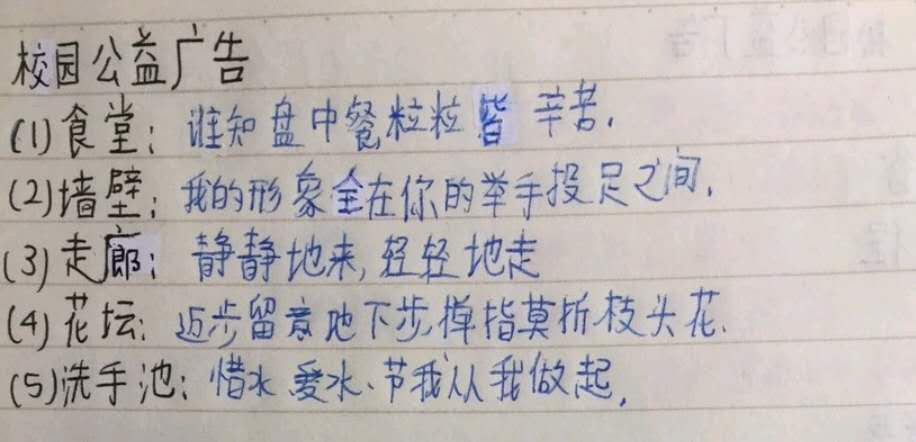 校园公益广告
(1)食堂：谁知盘中餐粒粒皆辛苦.
(2)墙壁：我的形象全在你的举手投足之间.
(3)走廊：静静地来,轻轻地走
(4)花坛：迈步留意地下步,掸指莫折枝头花.
(5)洗手池：惜水爱水、节我从我做起.